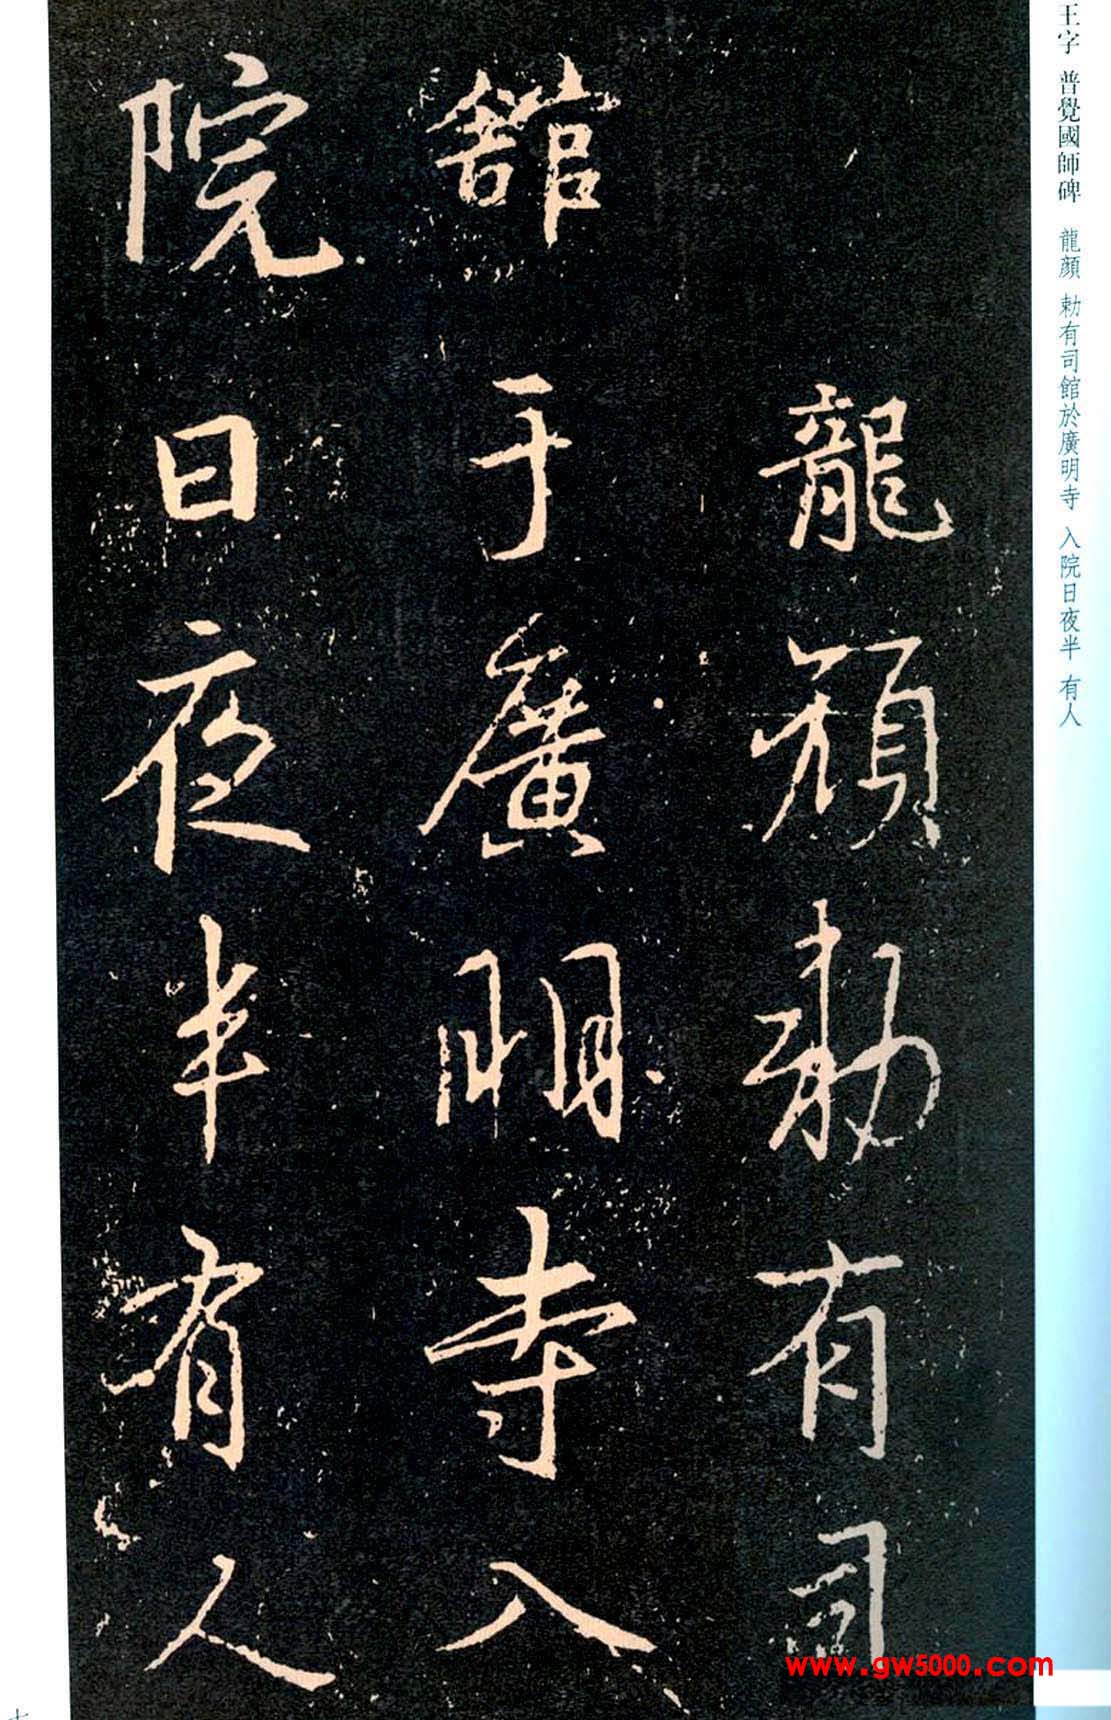 王字 普覺國師碑 龍顔 勅有司館於廣明寺 入院日夜半 有人
龍顔勅有司
舘于廣明寺入
院日夜半有人
www.gw5000.com